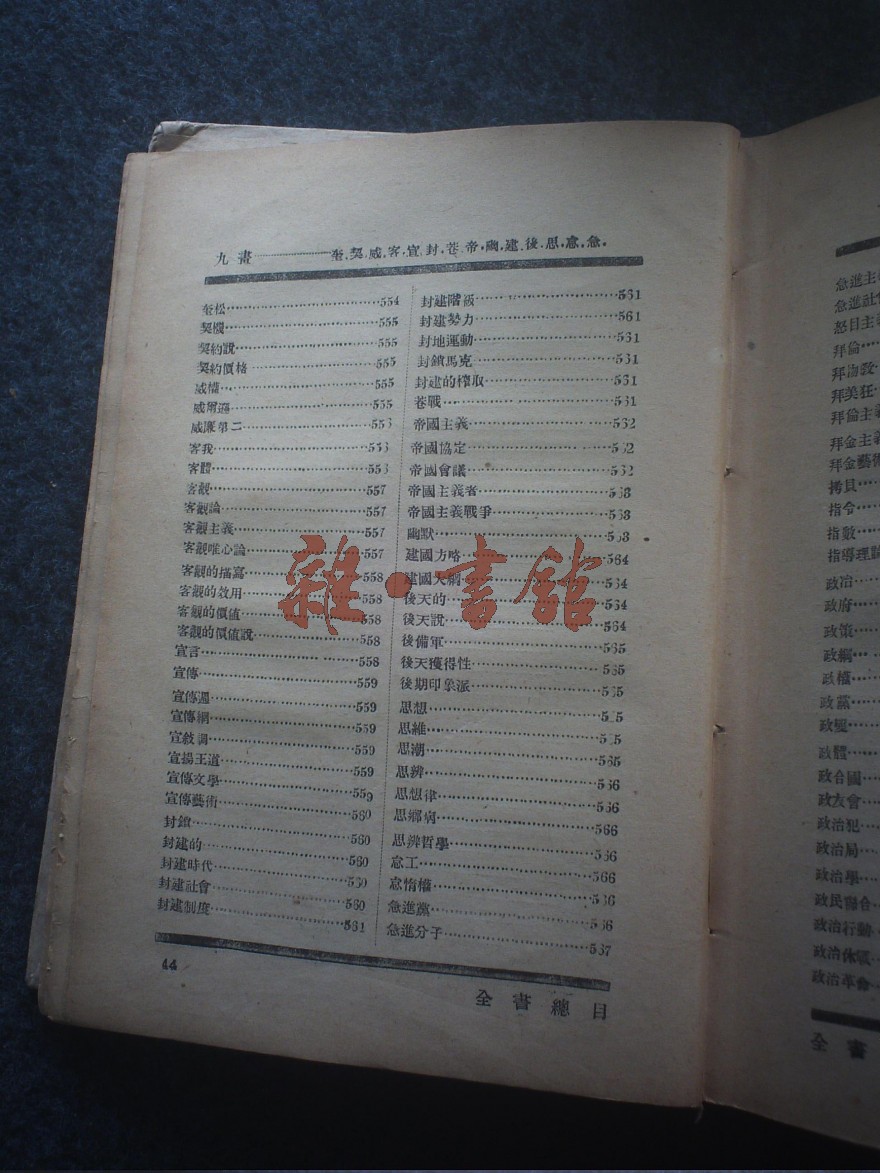 九畫……奎.契.威.客.宣.封.巷.帝.幽.建.後.思.怠.急.
奎松……554
契機……555
契約說……555
契約價格……555
威權……555
威爾遜……555
威廉第二……556
客我……556
客體……556
客觀……557
客觀論……557
客觀主義……557
客觀唯心論……557
客觀的描寫……558
客觀的效用……558
客觀的價値……558
客觀的價値說……558
宣言……558
宣傳……559
宣傳週……559
宣傳網……559
宣敍調……559
宣揚王道……559
宣傳文學……559
宣傳藝術……560
封鎖……560
封建的……560
封建時代……560
封建社會……560
封建制度……561
封建階級……561
封建勢力……561
封地運動……561
封鎖馬克……561
封建的榨取……561
巷戰……561
帝國主義……562
帝國協定……562
帝國會議……562
帝國主義者……563
帝國主義戰爭……563
幽默……563
建國方略……564
建國大綱……564
後天的……564
後天說……564
後備軍……565
後天獲得性……565
後期印象派……565
思想……565
思維……565
思潮……565
思辨……566
思想律……566
思鄉病……566
思辨哲學……566
怠工……566
怠惰權……566
急進黨……566
急進分子……567
44
全書總目
雜·書館
急進主
急進社會
怒目主
拜倫
拜物教
拜美狂
拜倫主
拜金主
拜金藝術
拷貝
指令
指數
指導理論
政治
政府
政策
政綱
政權
政黨
政變
政體
政合國
政友會
政治犯
政治局
政治學
政民聯合
政治行動
政治休戰
政治革命
全書